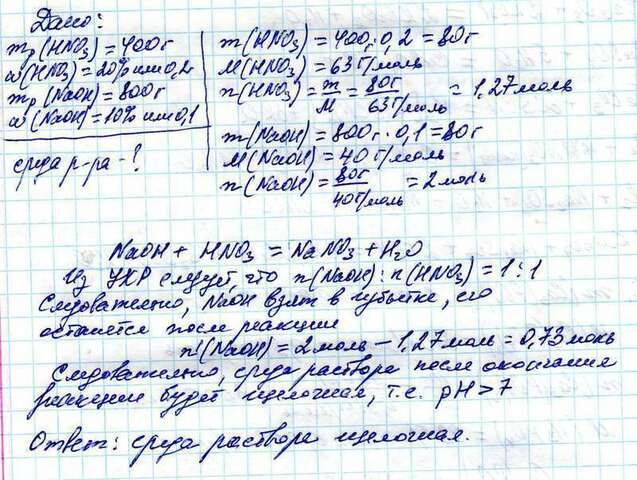 Дано:
mр(HNO3) = 400г
ω(HNO3) = 20% или 0,2
mр(NaOH) = 800г
ω(NaOH) = 10% или 0,1
среда р-ра - ?
m(HNO3) = 400г · 0,2 = 80г
M(HNO3) = 63 г/моль
n(HNO3) = m/M = 80г/63г/моль = 1,27моль
m(NaOH) = 800г · 0,1 = 80г
M(NaOH) = 40 г/моль
n(NaOH) = 80г/40г/моль = 2моль
NaOH + HNO3 = NaNO3 + H2O
Из УХР следует, что n(NaOH) : n(HNO3) = 1 : 1
Следовательно, NaOH взят в избытке, его
останется после реакции
n'(NaOH) = 2моль - 1,27моль = 0,73моль
Следовательно, среда раствора после окончания
реакции будет щелочная, т.е. pH > 7
Ответ: среда раствора щелочная.